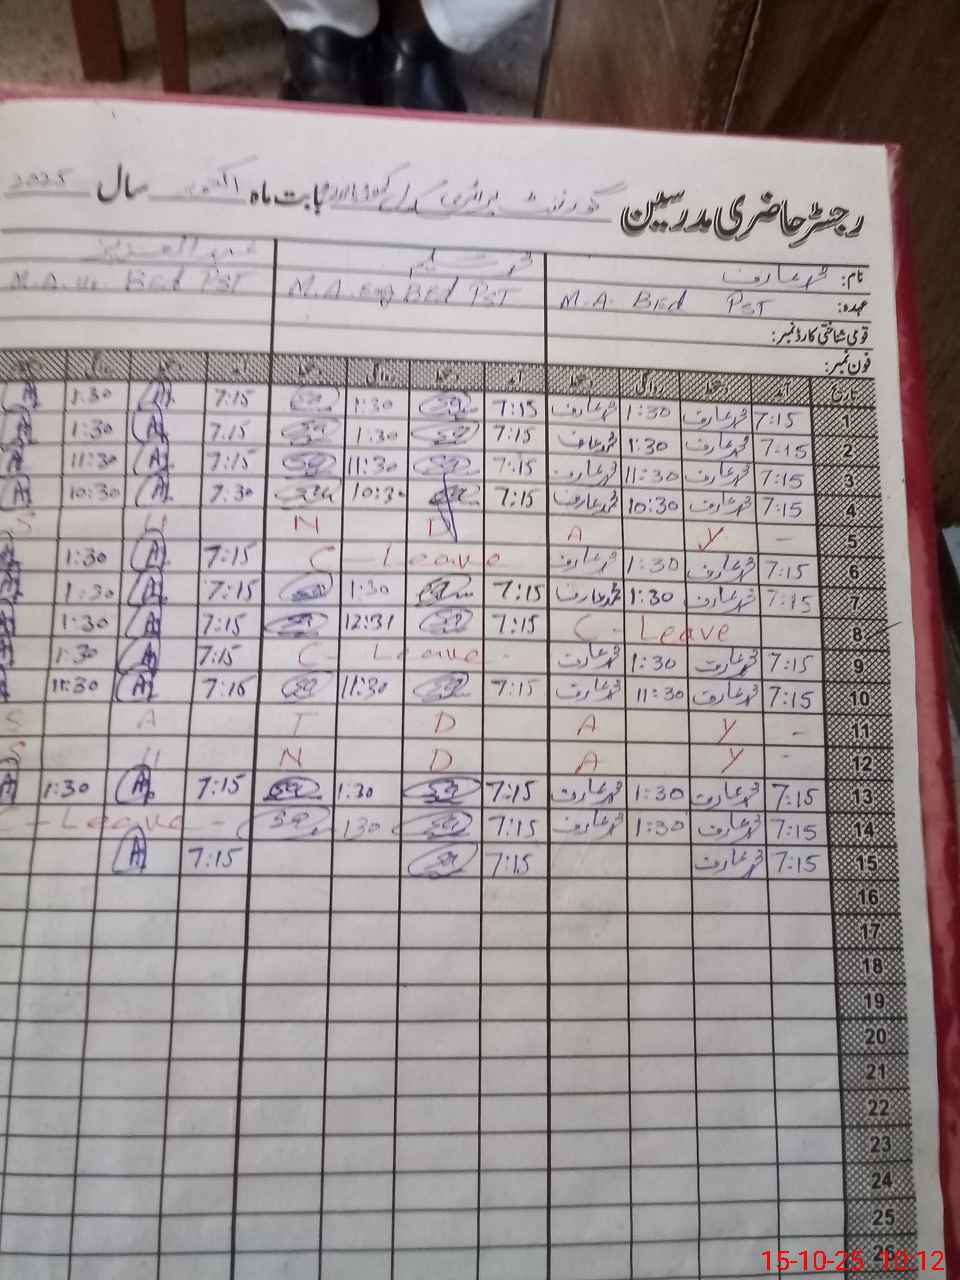 رجسٹر حاضری مدرسین گورنمنٹ پرائمری سکول بابت ماہ اکتوبر سال 2025
نام: محمد عارف محمد سلیم عبدالعزیز
عہدہ: M.A. BEd PST M.A. Eng BEd PST M.A. BEd PST
قومی شناختی کارڈ نمبر:
فون نمبر:
تاریخ آمد دستخط روانگی دستخط آمد دستخط روانگی دستخط آمد دستخط روانگی
1 7:15 محمد عارف 1:30 محمد عارف 7:15 1:30 7:15 1:30
2 7:15 محمد عارف 1:30 محمد عارف 7:15 1:30 7:15 1:30
3 7:15 محمد عارف 11:30 محمد عارف 7:15 11:30 7:15 11:30
4 7:15 محمد عارف 10:30 محمد عارف 7:15 10:30 7:30 10:30
5 S U N D A Y -
6 7:15 محمد عارف 1:30 محمد عارف C - Leave 7:15 1:30
7 7:15 محمد عارف 1:30 محمد عارف 7:15 1:30 7:15 1:30
8 C - Leave 7:15 12:31 7:15 1:30
9 7:15 محمد عارف 1:30 محمد عارف C - Leave - 7:15 1:30
10 7:15 محمد عارف 11:30 محمد عارف 7:15 11:30 7:15 11:30
11 S A T D A Y -
12 S U N D A Y -
13 7:15 محمد عارف 1:30 محمد عارف 7:15 1:30 7:15 1:30
14 7:15 محمد عارف 1:30 محمد عارف 7:15 130 C - Leave -
15 7:15 محمد عارف 7:15 7:15
16
17
18
19
20
21
22
23
24
25
26
15-10-25 10:12